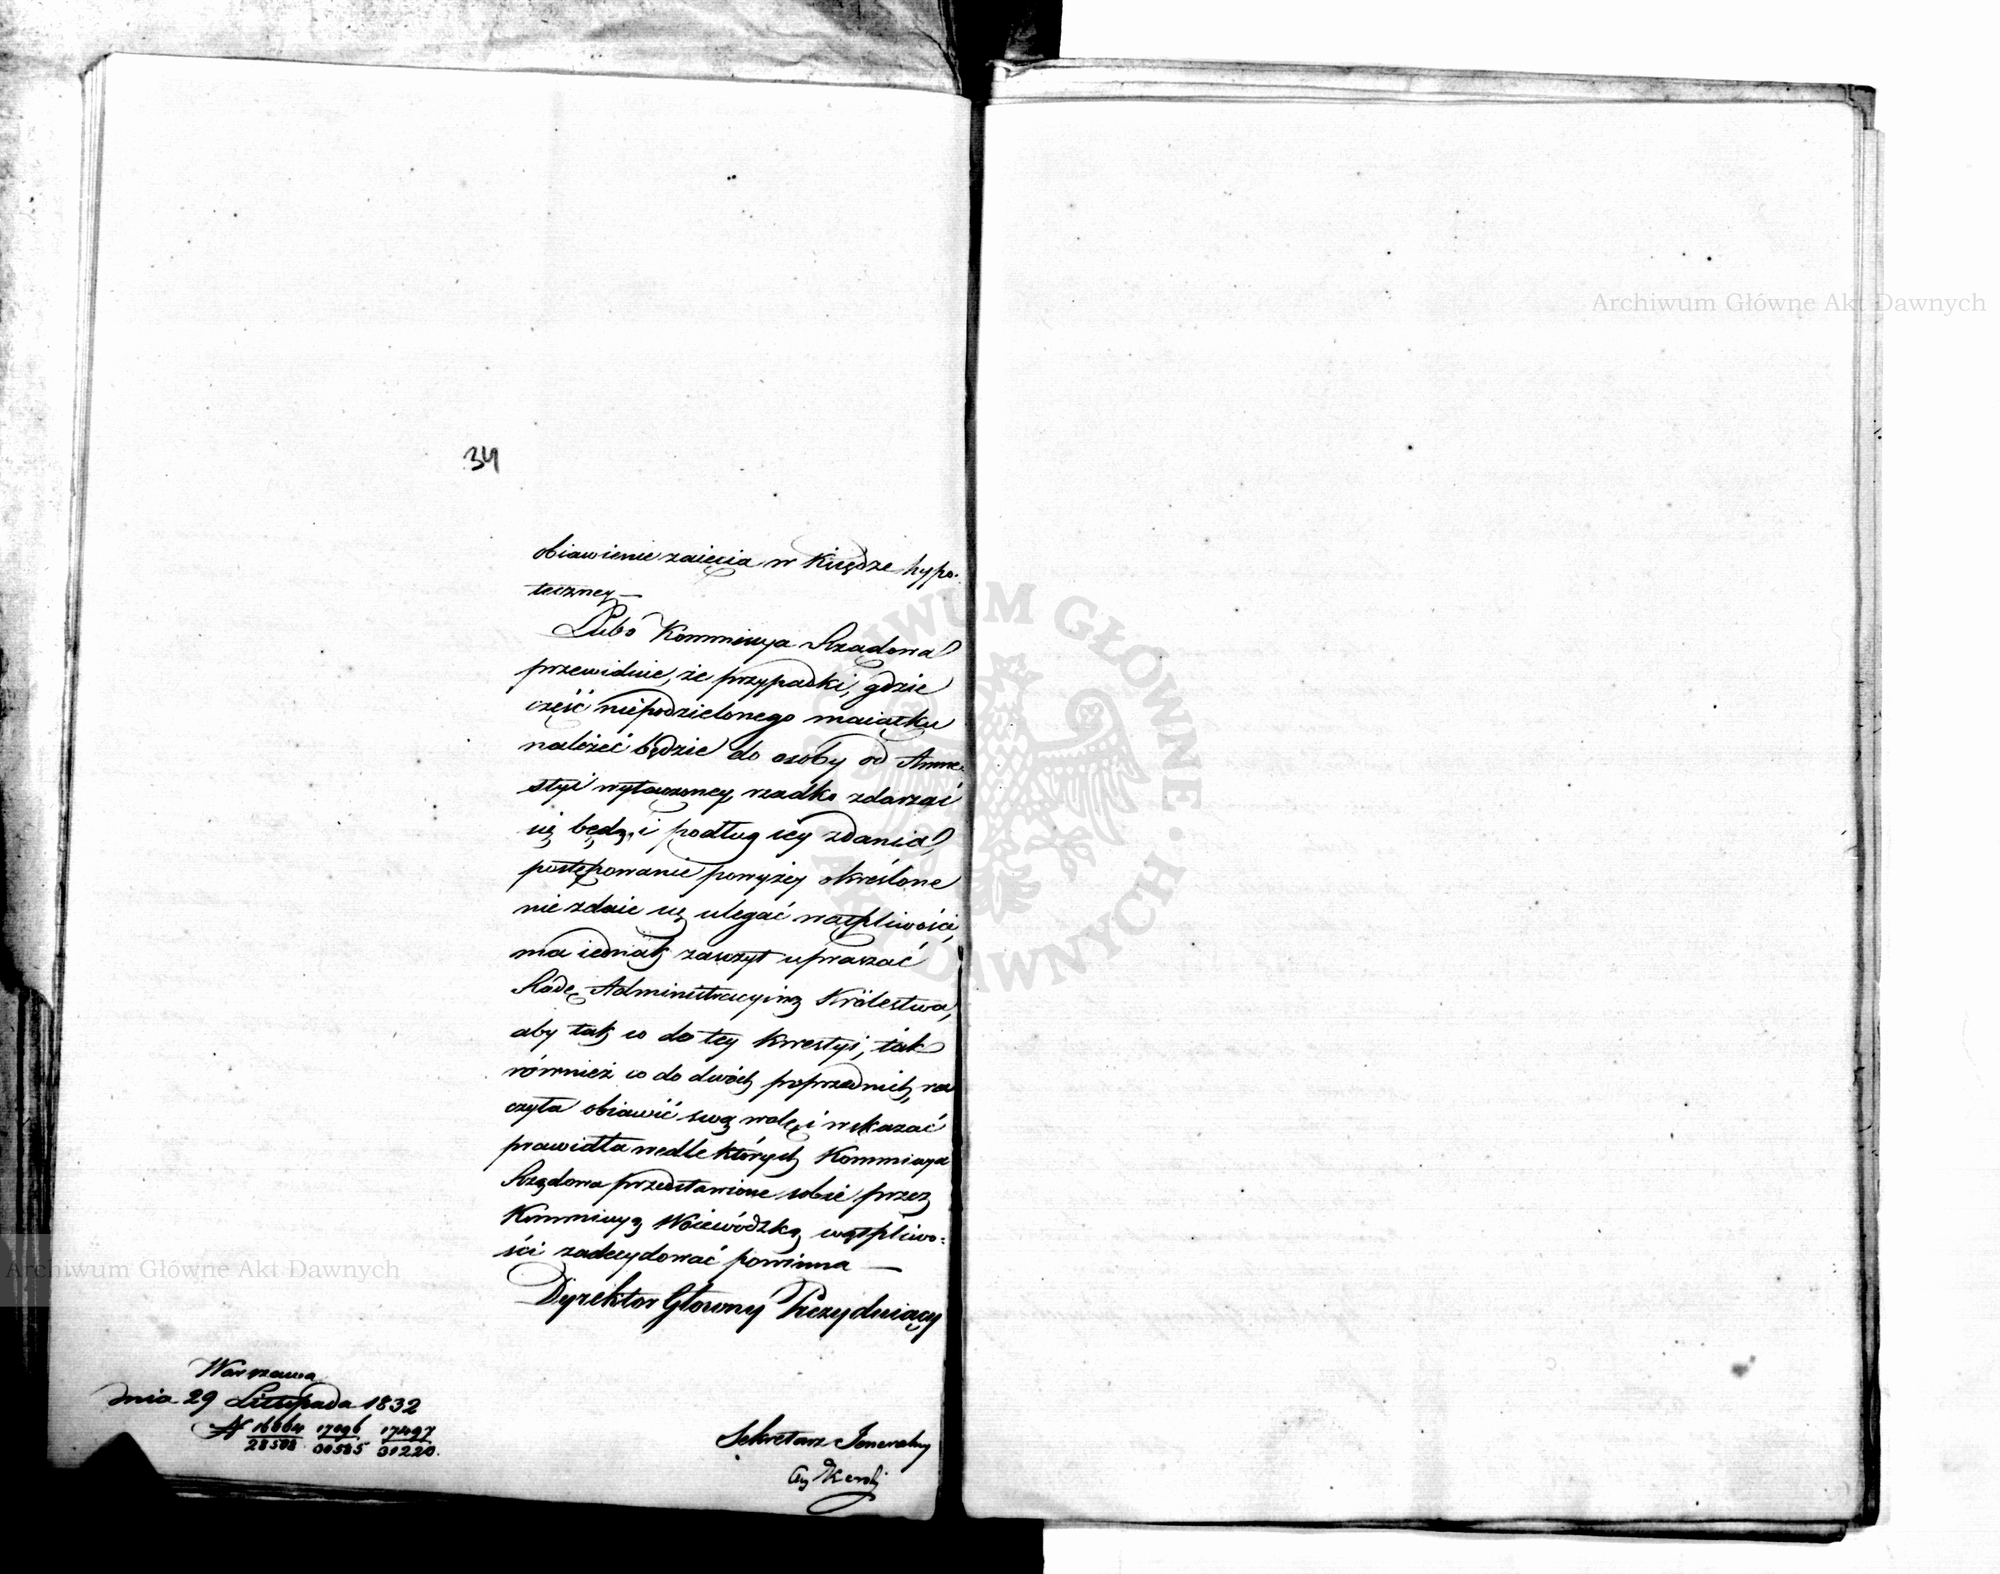 34
obiawienie zaięcia w Księdze hypo-
teczney —
Lubo Kommissya Rządowa
przewiduie, że przypadki, gdzie
część niepodzielonego maiątku
należeć będzie do osoby od Amne-
styi wyłączoney, rzadko zdarzać
się będą, i podług iey zdania,
postępowanie powyżey określone
nie zdaie się ulegać wątpliwości,
ma iednak zaszczyt upraszać
Radę Administracyiną Królestwa,
aby tak co do tey kwestyi, iak
również co do dwóch poprzednich, ra-
czyła obiawić swą wolę i wskazać
prawidła wedle których Kommissya
Rządowa przedstawione sobie przez
Kommissyą Woiewódzką wątpliwo-
ści zadecydować powinna —
Dyrektor Główny Prezyduiący
Warszawa
dnia 29 Listopada 1832
N 16664 17096 17497
28508 30585 31220.
Sekretarz Jeneralny
Archiwum Główne Akt Dawnych
Archiwum Główne Akt Dawnych
ARCHIWUM GŁÓWNE AKT DAWNYCH